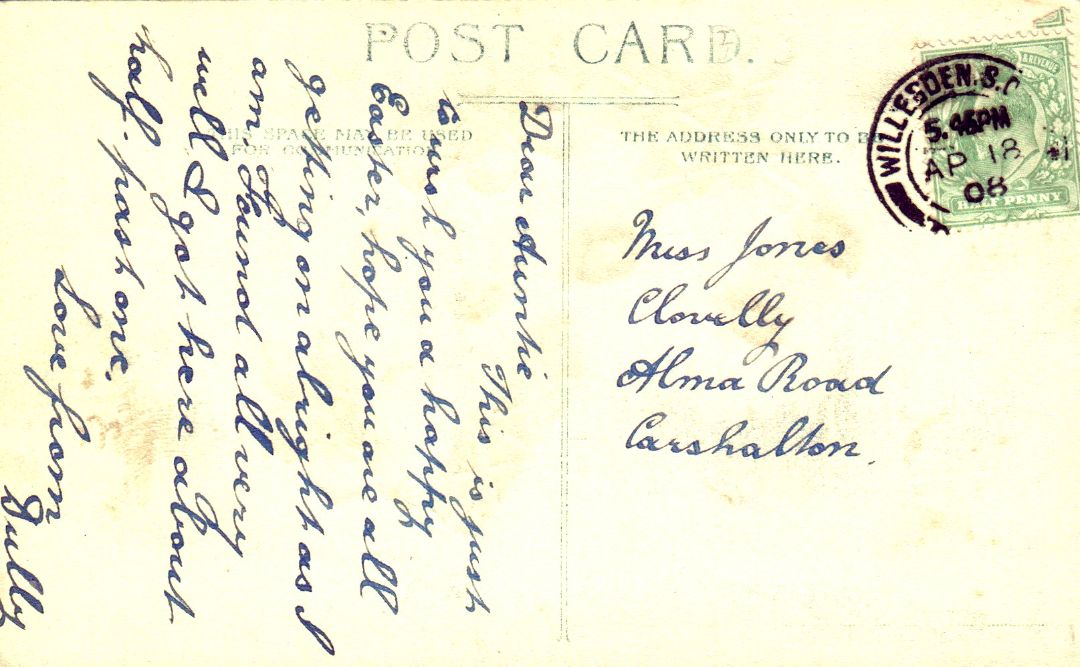 POST CARD.
THIS SPACE MAY BE USED
FOR COMMUNICATION
THE ADDRESS ONLY TO BE
WRITTEN HERE.
& REVENUE
HALF PENNY
WILLESDEN. S.O
5.45PM
AP 18
08
Dear Auntie
This is just
to wish you a happy
Easter, hope you are all
getting on alright as I
am. Found all very
well. I got here about
half. past one.
Love from
Miss Jones
Clovelly
Alma Road
Carshalton.